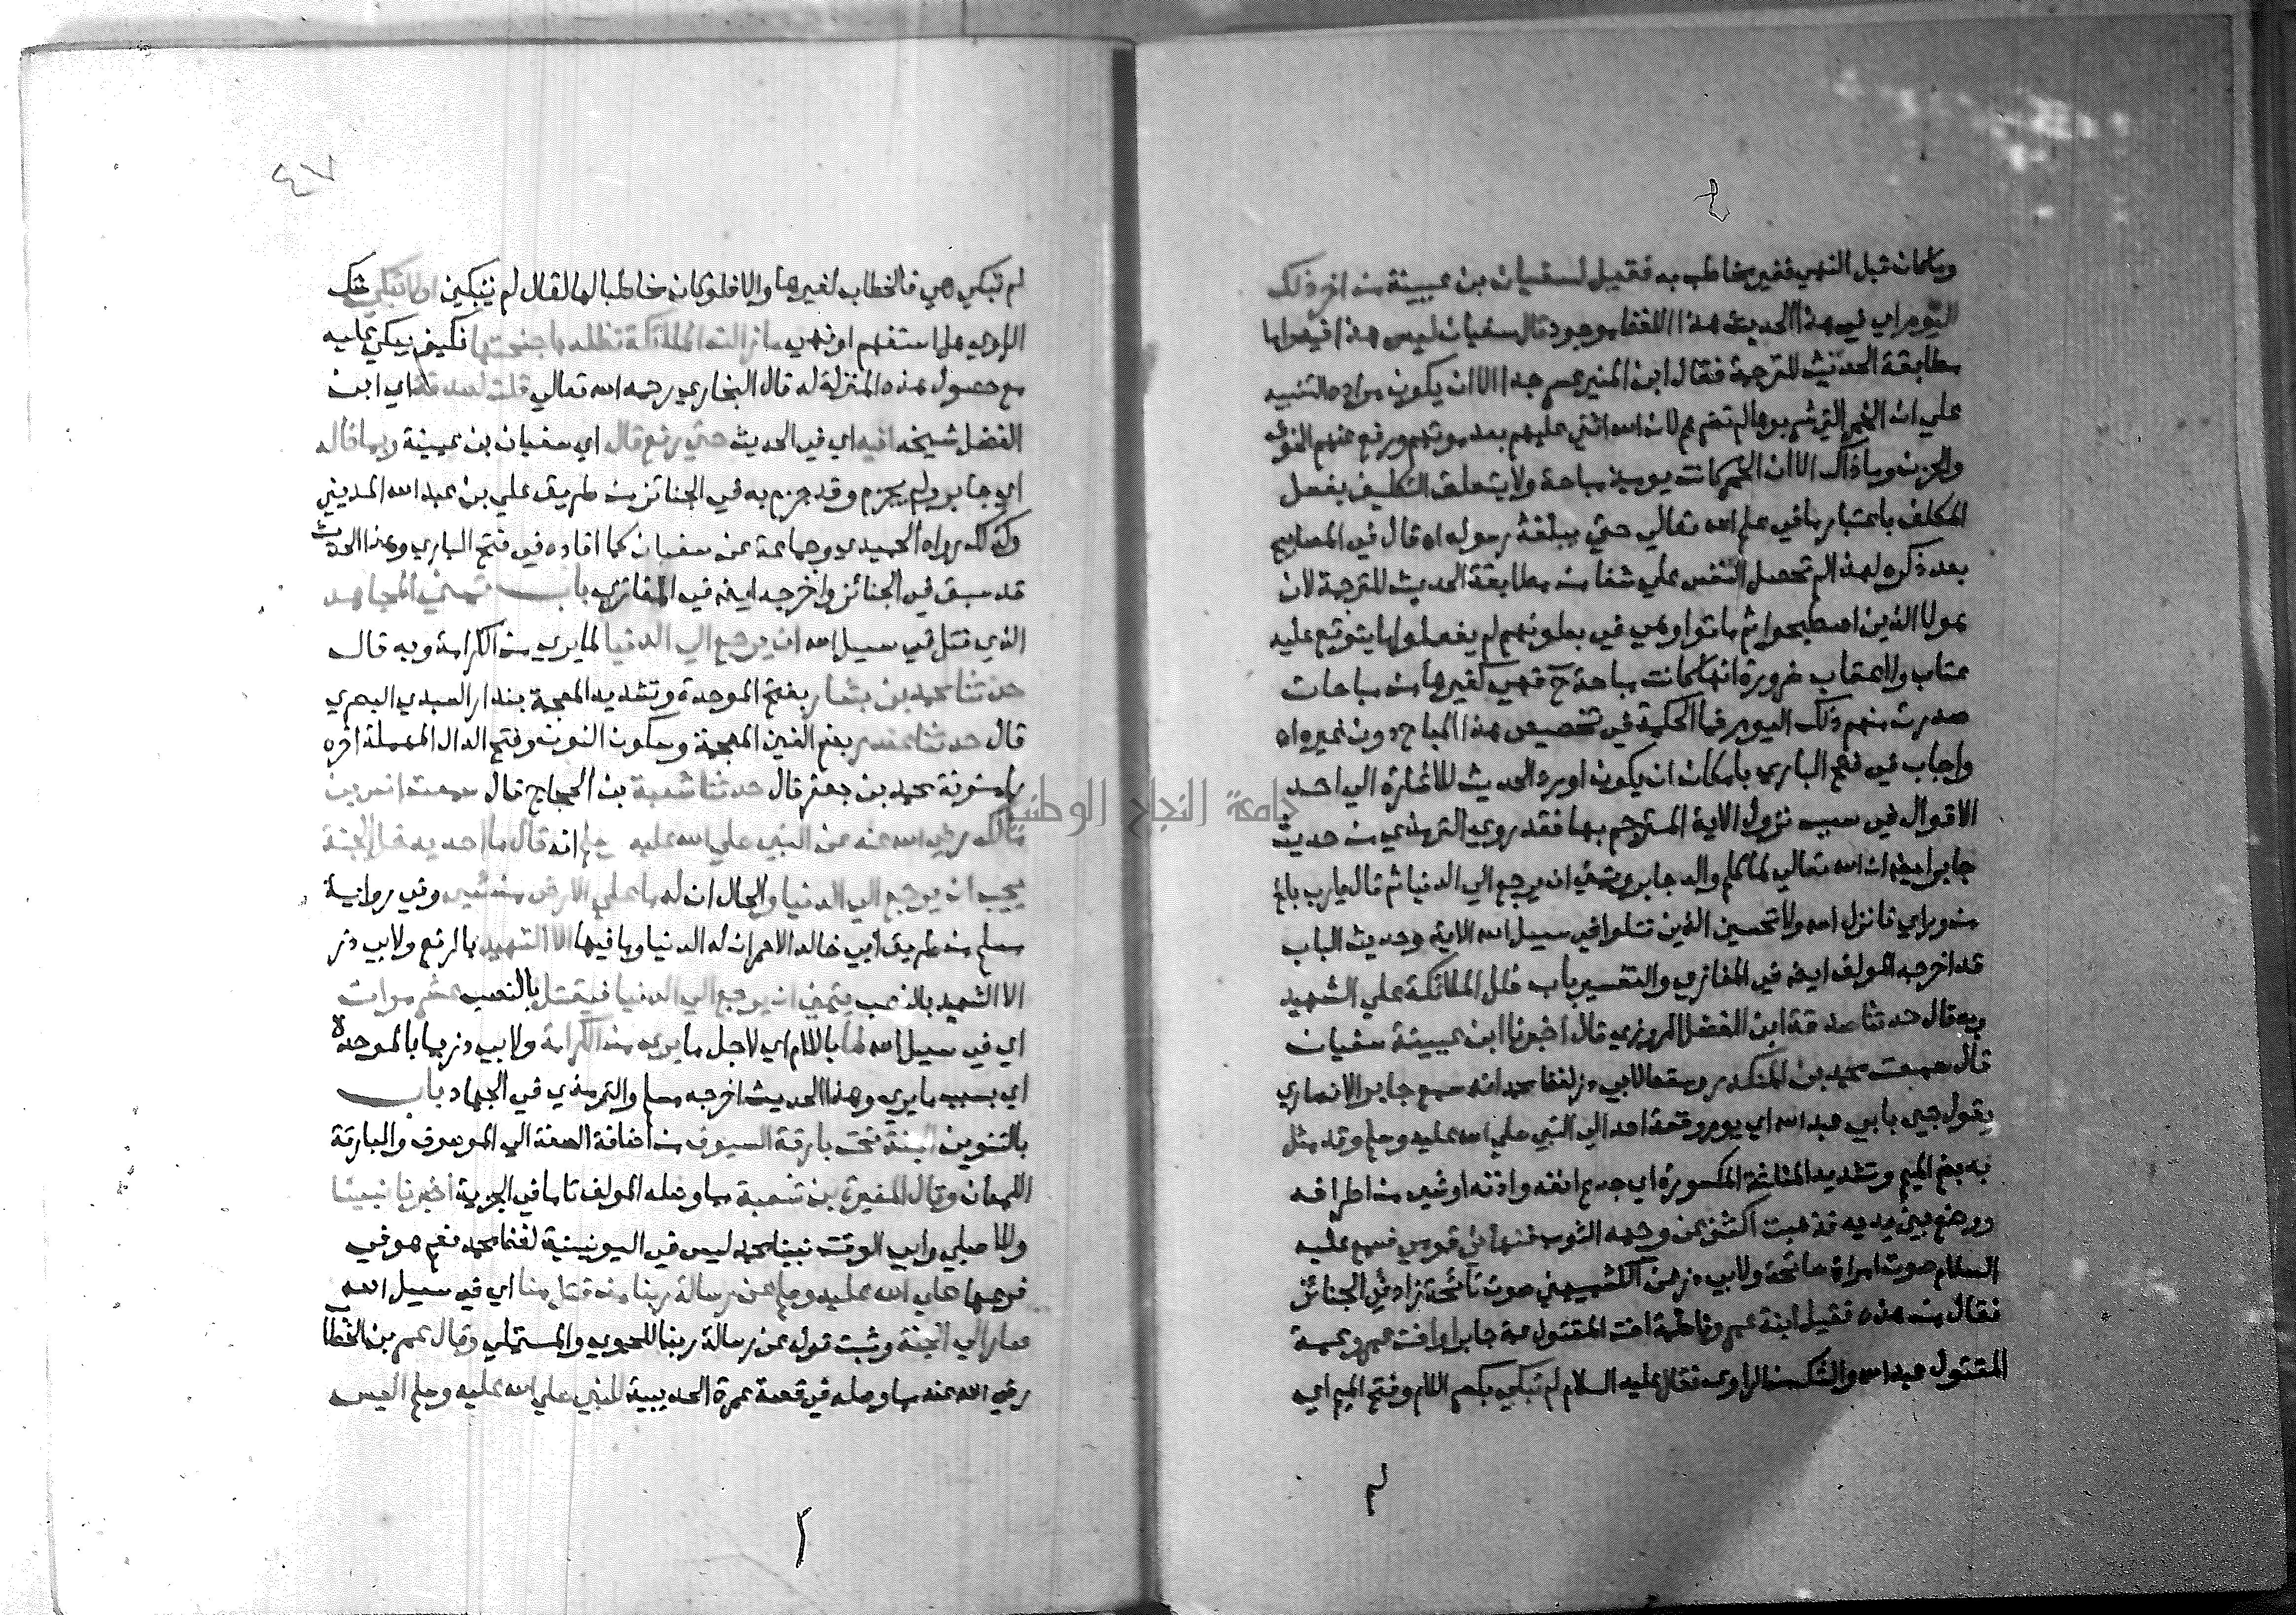 وما كان قبل النهي فغير مخاطب به فقيل لسفيان بن عيينة من اخر ذلك
اليوم اي في هذا الحديث هذا اللفظ موجود قال سفيان ليس هذا فيه واما
مطابقة الحديث للترجمة فقال ابن المنير عسر جدا الا ان يكون مراده التنبيه
علي ان الخمر التي شربوها لم تضرهم لان الله اثني عليهم بعد موتهم ورفع عنهم الخوف
والحزن وما ذاك الا ان الخمر كانت يومئذ مباحة ولا يتعلق التكليف بفعل
المكلف باعتبار ما في علم الله تعالي حتي يبلغه رسوله اه قال في المصابيح
بعد ذكره لهذا لم تحصل النفس علي شفا من مطابقة الحديث للترجمة لان
هولا الذين اصطبحوا ثم ماتوا وهي في بطونهم لم يفعلوا ما يتوقع عليه
عتاب ولا عقاب ضرورة انها كانت مباحة ح فهي كغيرها من مباحات
صدرت منهم ذلك اليوم فما الحكمة في تخصيص هذا المباح دون غيره اه
واجاب في فتح الباري بامكان ان يكون اورد الحديث للاشارة الي احد
الاقوال في سبب نزول الاية المترجم بها فقد روي الترمذي من حديث
جابر ايضا ان الله تعالي لما كلم والد جابر وتمني ان يرجع الي الدنيا ثم قال يارب بلغ
من وراي فانزل الله ولا تحسبن الذين قتلوا في سبيل الله الاية وحديث الباب
قد اخرجه المولف ايضا في المغازي والتفسير باب ظل الملائكة علي الشهيد
وبه قال حدثنا صدقة ابن الفضل المروزي قال اخبرنا ابن عيينة سفيان
قال سمعت محمد بن المنكدر وسقط لابي ذر لفظ محمد انه سمع جابر الانصاري
يقول جيي بابي عبد الله اي يوم وقعة احد الي النبي صلي الله عليه وسلم وقد مثل
به بضم الميم وتشديد المثلثة المكسورة اي جدع انفه واذنه او شي من اطرافه
ووضع بين يديه فذهبت اكشف عن وجهه الثوب فنهاني قومي فسمع عليه
السلام صوت امراة صائحة ولابي ذر عن الكشميهني صوت نائحة زاد في الجنائز
فقال من هذه فقيل ابنة عمرو فاطمة اخت المقتول عمة جابر او اخت عمرو عمة
المقتول عبد الله والشك من الراوي فقال عليه السلام لم تبكي بكسر اللام وفتح الميم اي
لم
٤٧
لم تبكي هي فالخطاب لغيرها والا فلو كان مخاطبا لها لقال لم تبكين او لا تبكي شك
الراوي هل استفهم او نهي ما زالت الملائكة تظله باجنحتها فكيف يبكي عليه
مع حصول هذه المنزلة له قال البخاري رحمه الله تعالي قلت لصدقة اي ابن
الفضل شيخه افيه اي في الحديث حتي رفع قال اي سفيان بن عيينة ربما قاله
اي جابر ولم يجزم وقد جزم به في الجنائز من طريق علي بن عبد الله المديني
وكذلك رواه الحميدي وجماعة عن سفيان كما افاده في فتح الباري وهذا الحديث
قد سبق في الجنائز واخرجه ايضا في المغازي باب تمني المجاهد
الذي قتل في سبيل الله ان يرجع الي الدنيا لما يري من الكرامة وبه قال
حدثنا محمد بن بشار بفتح الموحدة وتشديد المعجمة بندار العبدي البصري
قال حدثنا غندر بضم الغين المعجمة وسكون النون وفتح الدال المهملة اخره
را منونة محمد بن جعفر قال حدثنا شعبة بن الحجاج قال سمعت انس بن
مالك رضي الله عنه عن النبي صلي الله عليه وسلم انه قال ما احد يدخل الجنة
يحب ان يرجع الي الدنيا والحال ان له ما علي الارض من شي وفي رواية
مسلم من طريق ابي خالد الاحمر ان له الدنيا وما فيها الا الشهيد بالرفع ولابي ذر
الا الشهيد بالنصب يتمني ان يرجع الي الدنيا فيقتل بالنصب عشر مرات
اي في سبيل الله لما باللام اي لاجل ما يري من الكرامة ولابي ذر بما بالموحدة
اي بسبب ما يري وهذا الحديث اخرجه مسلم والترمذي في الجهاد باب
بالتنوين الجنة تحت بارقة السيوف من اضافة الصفة الي الموصوف والبارقة
اللمعان وقال المغيرة بن شعبة مما وصله المولف تاما في الجزية اخبرنا نبينا
وللاصيلي وابي الوقت نبينا محمد ليس في اليونينية لفظ محمد نعم هو في
فرعها صلي الله عليه وسلم عن رسالة ربنا من قتل منا اي في سبيل الله
صار الي الجنة وثبت قوله عن رسالة ربنا للحموي والمستملي وقال عمر بن الخطاب
رضي الله عنه مما وصله في قصة عمرة الحديبية للنبي صلي الله عليه وسلم اليس
جامعة النجاح الوطنية